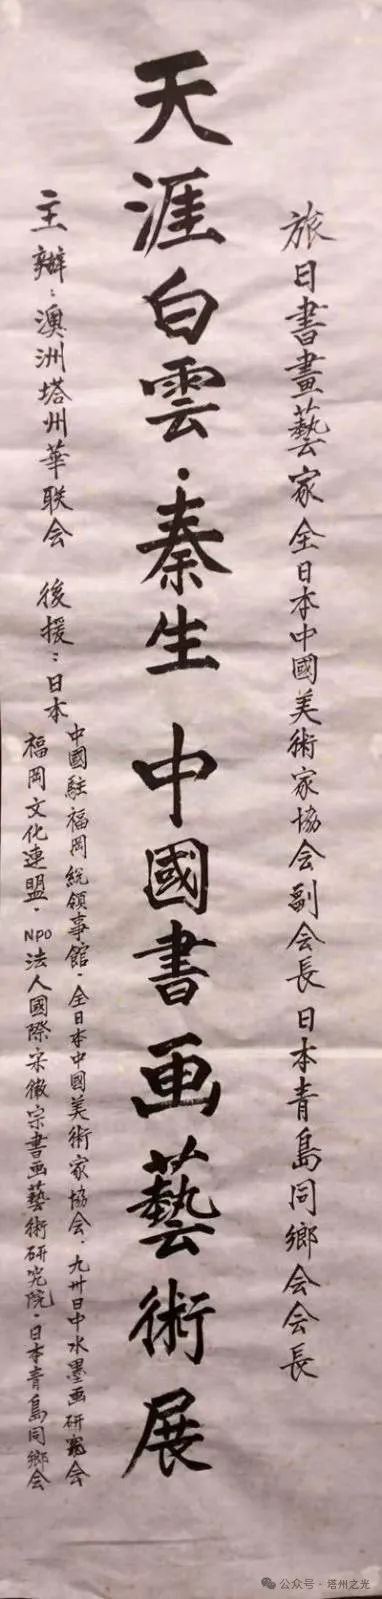 旅日書畫藝家全日本中國美術家協会副会長日本青島同鄉会会長
天涯白雲·秦生 中國書画藝術展
主辦：澳洲塔州華联会 後援：日本
中國駐福岡総領事館·全日本中國美術家協会·九卅日中水墨画研究会
福岡文化連盟·NPO法人國際宋徽宗書画藝術研究院·日本青島同鄉会
公众号·塔州之光